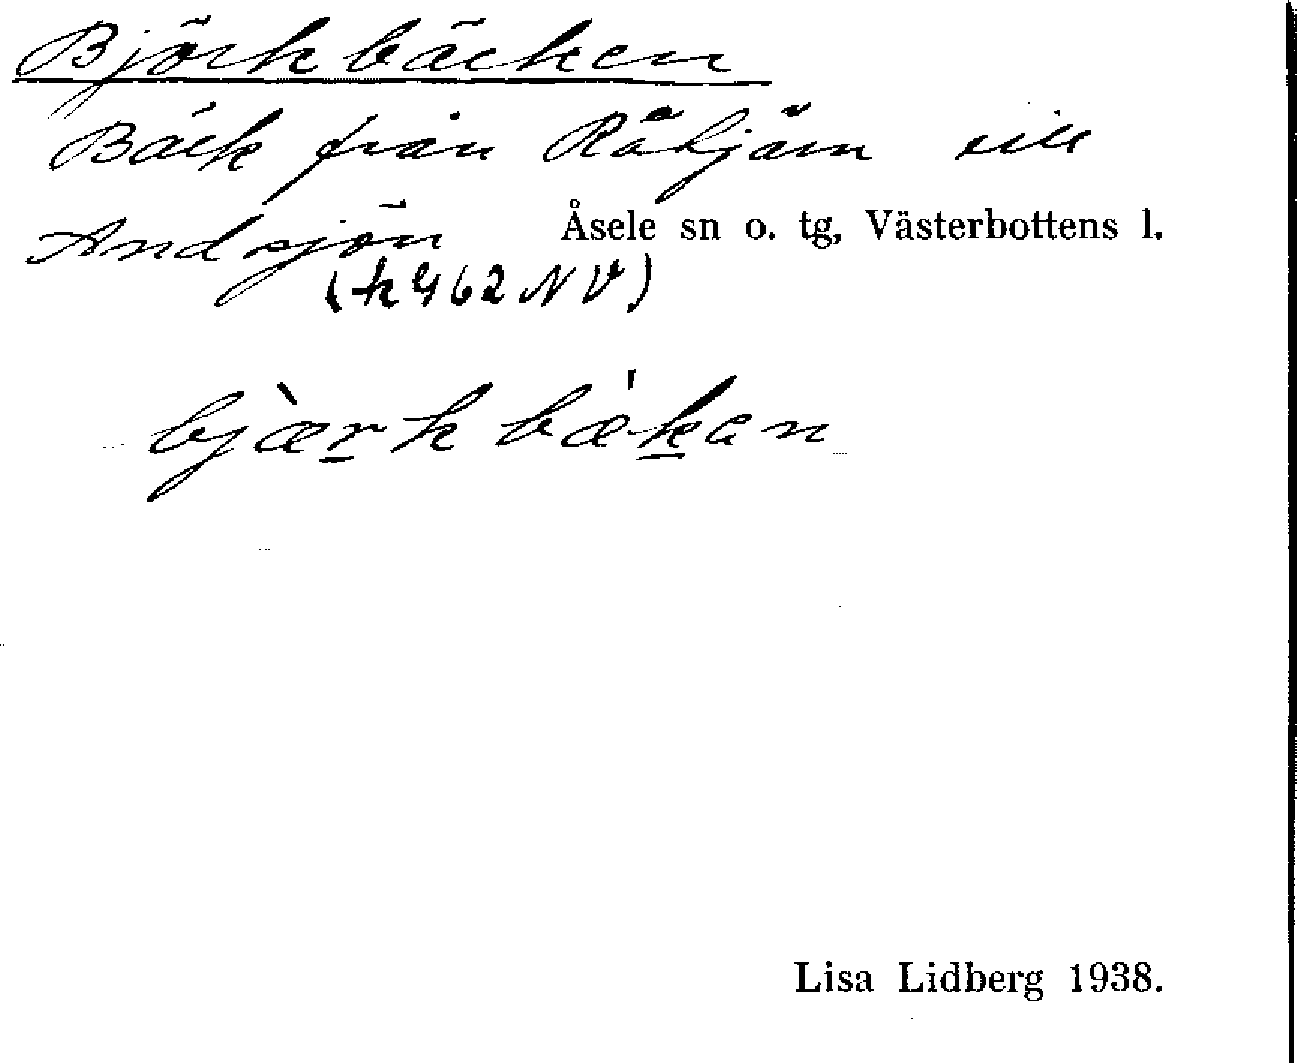 Björkbäcken
Bäck från Råtjärn till
Andsjön
Åsele sn o. tg, Västerbottens l.
(k 462 NV)
bjæ̀r̲k bæ̍k̲an
Lisa Lidberg 1938.